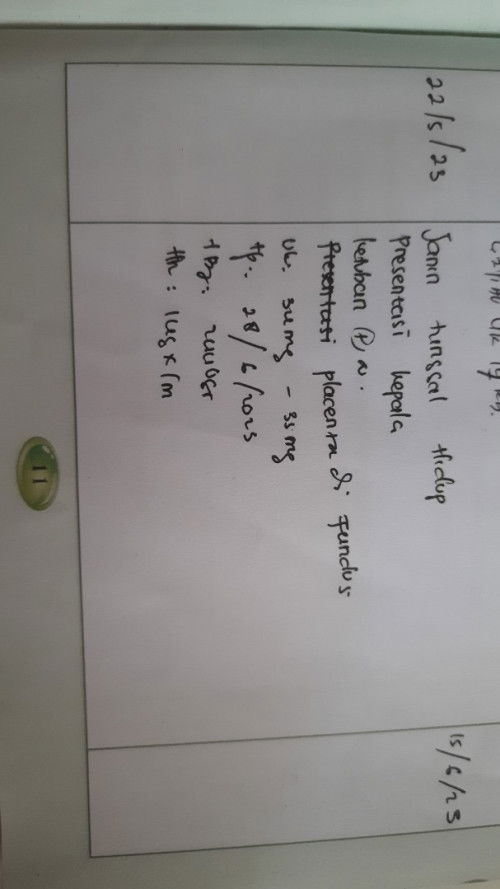 22/5/23
Janin tunggal Hidup
Presentasi kepala
ketuban (+) N.
placenta di Fundus
UK: 34 mg - 35 mg
TP: 28 / 6 / 2023
TBJ: 2440 gr
148 x / m
15/6/23
11